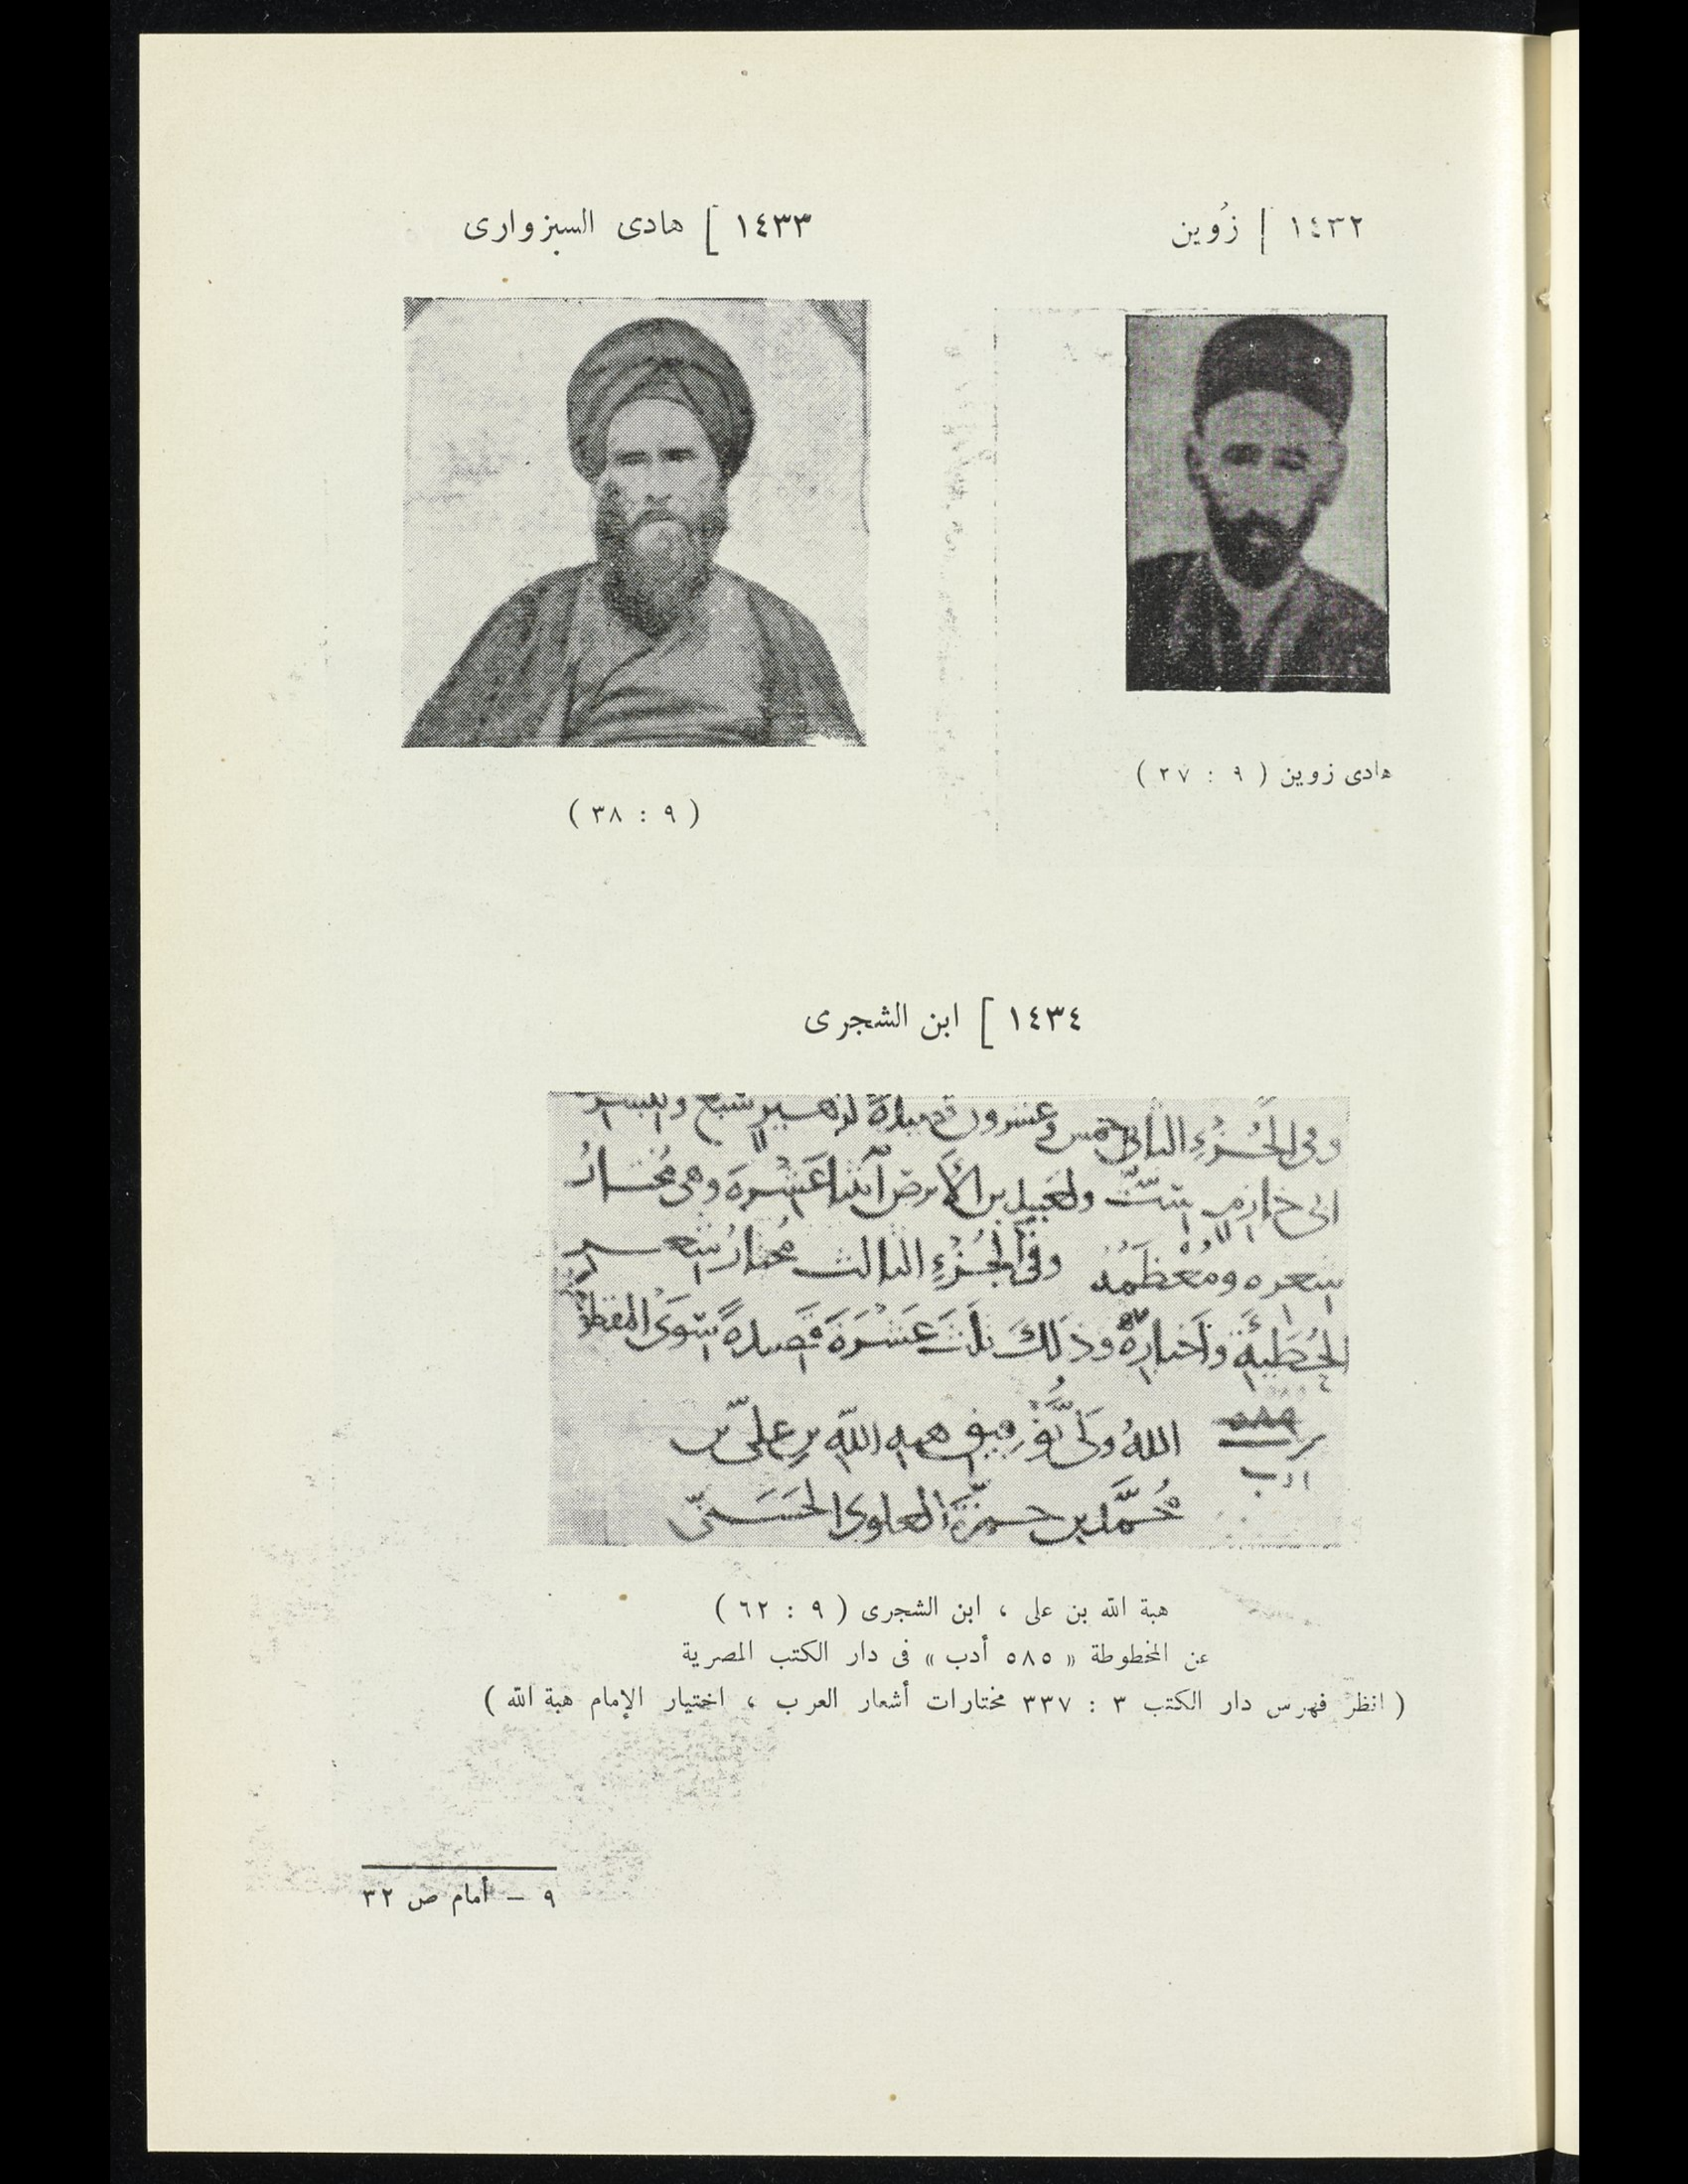 ١٤٣٢ [ زُوين
١٤٣٣ [ هادى السبزوارى
هادى زوين ( ٩ : ٣٧ )
( ٩ : ٣٨ )
١٤٣٤ [ ابن الشجرى
وفى الجُزْءِ الثانى خمس وعشرون قصيدةً لزهير سبع ولبشر
ابى خازم ستّ ولعَبيد بن الأبرص اثنتا عَشرة وهى مُختارُ
شعره ومُعْظَمُه وفى الجُزْءِ الثالث مُختارُ شعر
الحُطَيئةِ وأخبارِهُ وذلك ثلثَ عَشْرَةَ قصيدةً سِوَى
اللهُ ولىُّ توفيق هبه الله بن علىّ بن
مُحمَّد بن حمزة العلوى الحَسَنىّ
ادب
هبة الله بن على ، ابن الشجرى ( ٩ : ٦٢ )
عن المخطوطة « ٥٨٥ أدب » فى دار الكتب المصرية
( انظر فهرس دار الكتب ٣ : ٣٣٧ مختارات أشعار العرب ، اختيار الإمام هبة الله )
٩ – أمام ص ٣٢